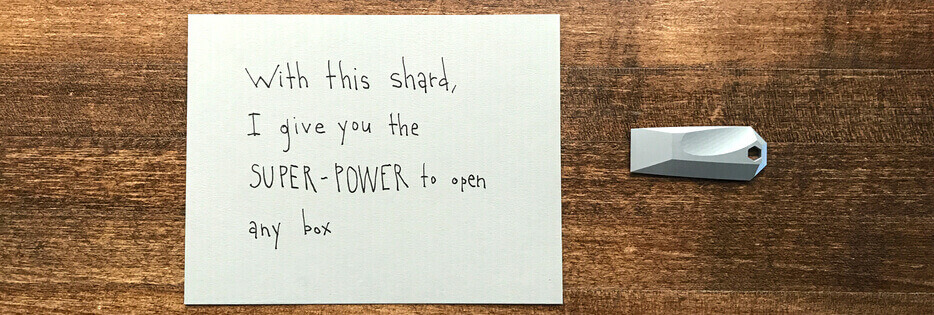 With this shard,
I give you the
SUPER-POWER to open
any box